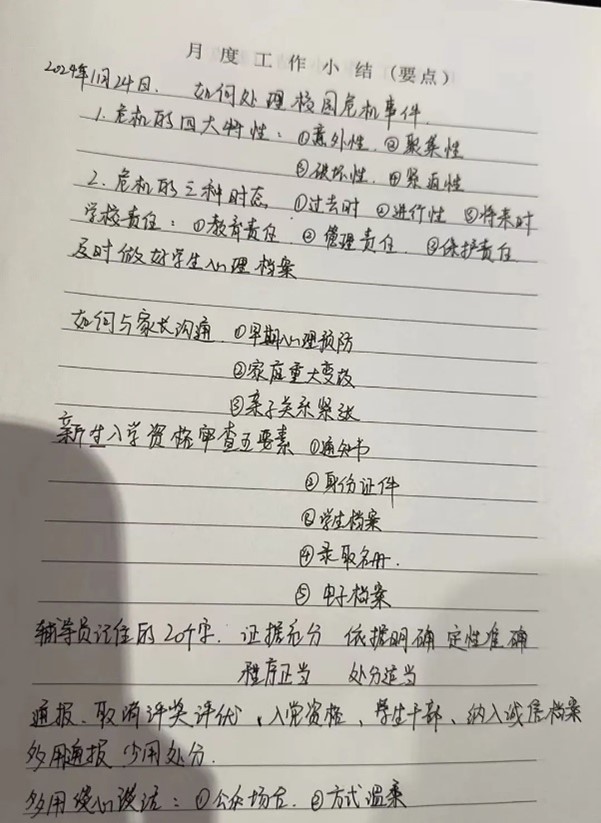 月度工作小结（要点）
2024年11月24日. 如何处理校园危机事件.
1. 危机的四大特性：①意外性. ②聚集性
③破坏性. ④紧迫性
2. 危机的三种时态 ①过去时 ②进行性 ③将来时
学校责任：①教育责任. ② 管理责任. ③保护责任
及时做好学生心理档案
如何与家长沟通 ①早期心理预防
②家庭重大变故
③亲子关系紧张
新生入学资格审查五要素 ①通知书
②身份证件
③学生档案
④录取名册.
⑤ 电子档案
辅导员记住的20个字. 证据充分 依据明确 定性准确
程序正当 处分适当
通报、取消评奖评优、入党资格、学生干部、纳入诚信档案
多用通报 少用处分.
多用使心谈话：①公众场合. ②方式温柔